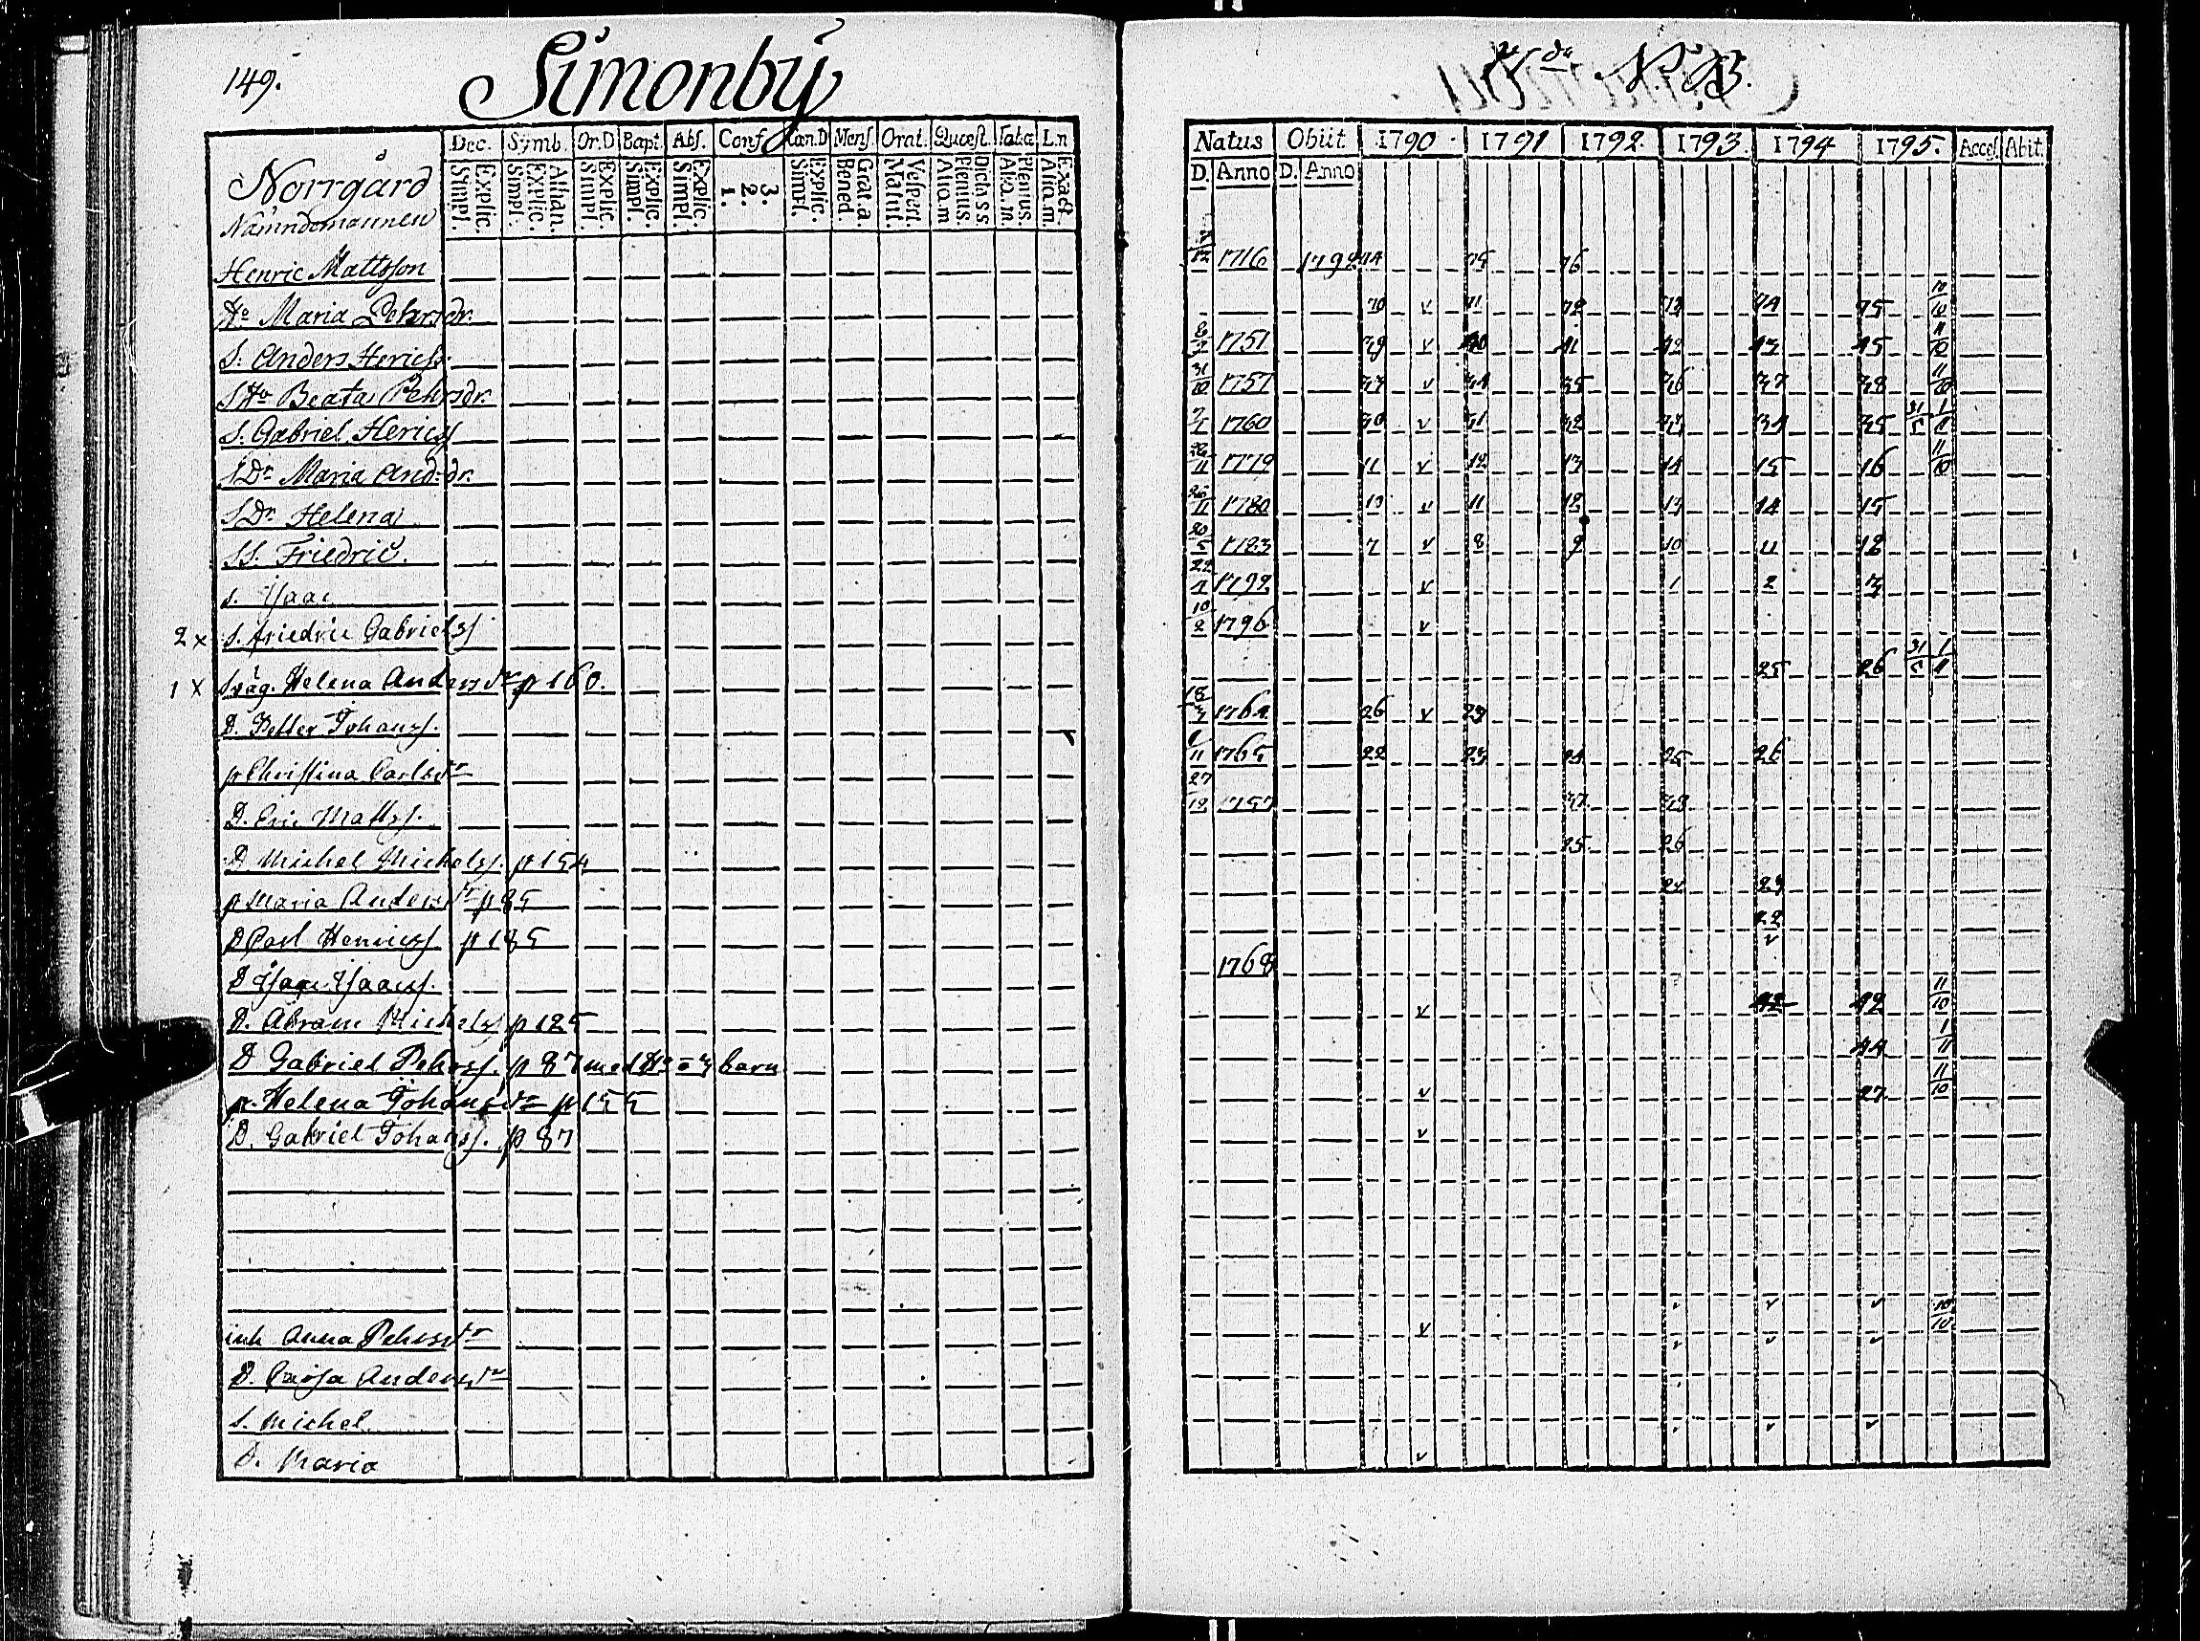 149.
Simonby
N.B.
Norrgård
Nämndemannen
Dec. Symb. Or.D Bapt. Abs. Conf Can.D Mens. Orat. Quæst. Tabæ L.n
Simpl. Explic. Simpl. Explic. Athan. Simpl. Explic. Simpl. Explic. Simpl. Explic. 1. 2. 3. Simpl. Explic. Bened. Grat.a Matut. Vespert. Aliq.m Plenius. Dicta s.s. Aliq.m Plenius. Aliq.m Exact.
Natus Obiit 1790. 1791 1792. 1793. 1794 1795. Acces. Abit.
D. Anno D. Anno
Henric Mattsson 1716 75 76
Ho Maria Pehrsdr. 70 v 71 72 73 74 75 10/10
S. Anders Henrics. 1751 39 v 40 41 42 43 45 11/10
SHo Beata Pehrsdr. 31/10 1757 33 v 34 35 36 37 38 11/10
S. Gabriel Henrics 1760 30 v 31 32 33 34 35 31/5 1/11
SDr Maria And:dr. 26/11 1779 11 v 12 13 14 15 16 11/10
SDr Helena 26/11 1780 10 v 11 12 13 14 15
SS. Friedric. 20/5 1783 7 v 8 9 10 11 12
s. Isaac 22/4 1792 v 1 2 3
2 x S. friedric Gabriels 10/2 1796 v
1 X Sväg. Helena Andersdr p 160. 25 26 31/5 1/11
D. Petter Johans. 18/3 1764 26 v 27
p Christina Carlsdr 11 1765 22 23 24 25 26
D. Eric Matts. 27/12 1757 37 38
D. Michel Michels. p 154 25 26
p Maria Andersdr p 85 22 23
D Carl Henrics. p 185 22 v
D Isac Isaacs. 1768
D. Abram Michels p 125 v 42 42 11/10
D Gabriel Pehrs. p 87 med Ho o 3 barn 44 1/11
p. Helena Johansdr p 155 v 27 11/10
D. Gabriel Johans. p 87 v
inh Anna Pehrsdr v v v 10/10
D. Caisa Andersdr v v v
S. Michel
D. Maria v v v